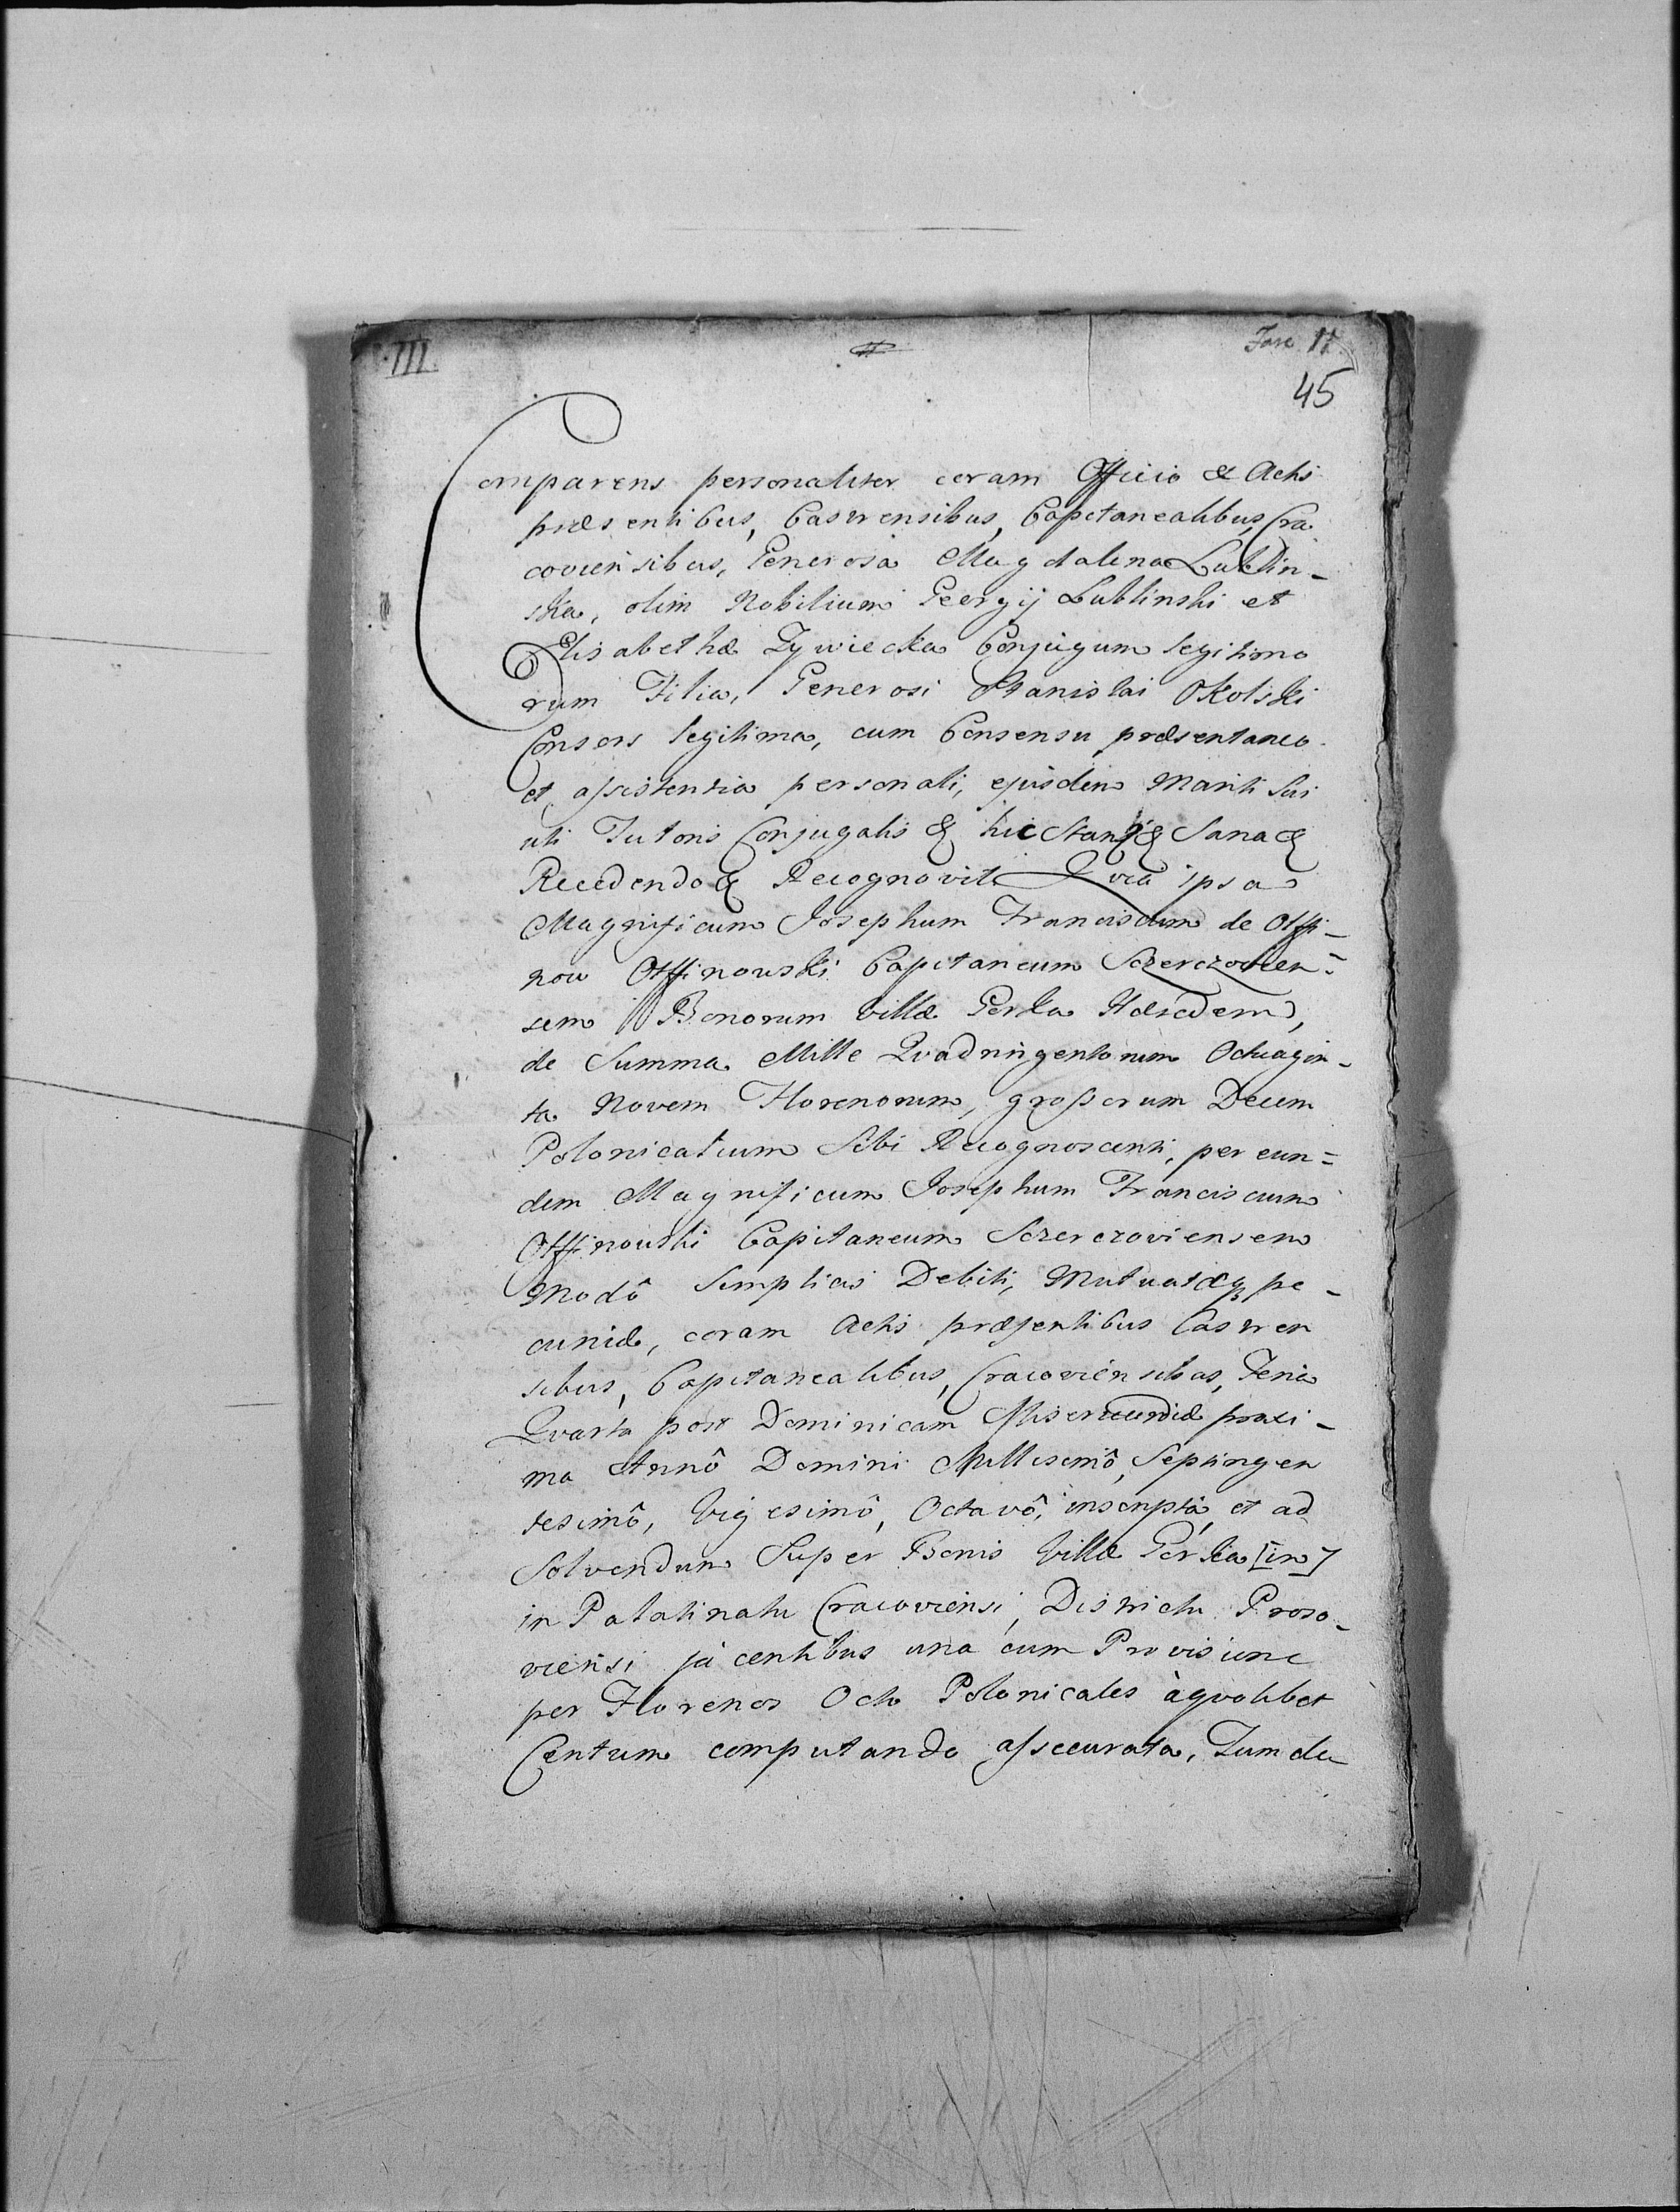 III.
Fasc. 11
45
Comparens personaliter coram Officio & Actis
præsentibus, Castrensibus, Capitanealibus, Cra
coviensibus, Generosa Magdalena Lublin-
ska, olim Nobilium Georgij Lublinski et
Elisabethæ Zywiecka Conjugum legitimo
rum Filia, Generosi Stanislai Okolski
Consors legitima, cum Consensu præsentaneo
et assistentia personali, ejusdem Mariti sui
uti Tutoris Conjugalis & hic Stans & Sana &
Recedendo & Recognovit Qvia ipsa
Magnificum Josephum Franciscum de Offi-
now Offinowski Capitaneum Szerczovien=
sem Bonorum Villæ Gorka Hæredem,
de Summa Mille Qvadringentorum Octuagin-
ta Novem Florenorum, grossorum Decem
Polonicalium Sibi Recognoscenti, per eun=
dem Magnificum Josephum Franciscum
Offinowski Capitaneum Szerczoviensem
Modô Simplicis Debiti, Mutuatæq pe-
cuniæ, coram Actis præsentibus Castren
sibus, Capitanealibus, Cracoviensibus, Feria
Qvarta post Dominicam Misericordiæ proxi-
ma Annô Domini Millesimô, Septingen
tesimô, Vigesimô, Octavô, inscripta, et ad
Solvendum Super Bonis Villæ Gorka [in]
in Palatinatu Cracoviensi, Districtu Proszo-
viensi jacentibus una cum Provisione
per Florenos Octo Polonicales à qvolibet
Centum computando assecurata, Tum de